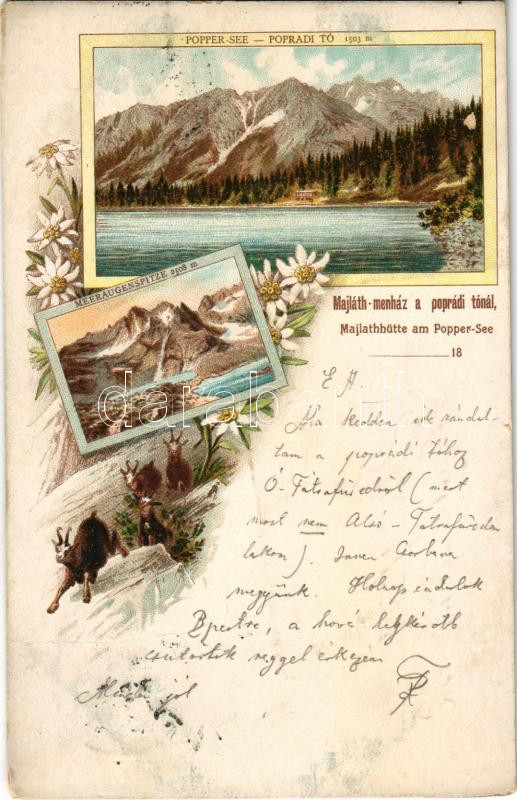 POPPER-SEE — POPRADI TÓ 1503 m
MEERAUGENSPITZE 2508 m
Majláth-menház a poprádi tónál,
Majlathbütte am Popper-See
18
E A.
Ma kedden rándul-
tam a poprádi tóhoz
Ó-Tátrafüredről (mert
most nem Alsó-Tátrafüreden
lakom). Innen Csorbára
megyünk. Holnap indulok
Bpestre, a hová legkésőbb
csütörtök reggel érkezem
Minden jól
darabanth